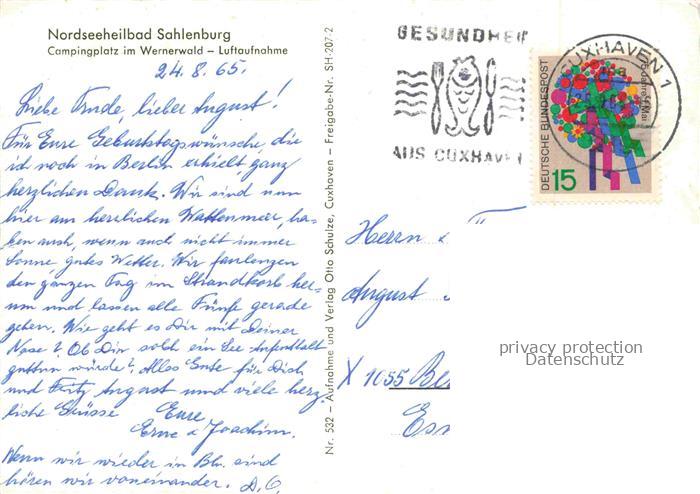 Nordseeheilbad Sahlenburg
Campingplatz im Wernerwald – Luftaufnahme
24.8.65.
Liebe Trude, lieber August!
Für Eure Geburtstagswünsche, die
ich noch in Berlin erhielt ganz
herzlichen Dank. Wir sind nun
hier am herrlichen Wattenmeer, ha-
ben auch, wenn auch nicht immer
Sonne, gutes Wetter. Wir faulenzen
den ganzen Tag im Strandkorb her-
um und lassen alle Fünfe gerade
gehen. Wie geht es Dir mit Deiner
Nase? Ob Dir solch ein See-Aufenthalt
guttun würde? Alles Gute für Dich
und Fritz August und viele herz-
liche Grüsse Eure
Erne & Joachim.
Wenn wir wieder in Bln. sind
hören wir voneinander. D.O.
Nr. 532 – Aufnahme und Verlag Otto Schulze, Cuxhaven – Freigabe-Nr. SH-207-2
GESUNDHEIT
AUS CUXHAVEN
CUXHAVEN 1
DEUTSCHE BUNDESPOST
15
Herrn
August
X 1055 Be
privacy protection
Datenschutz